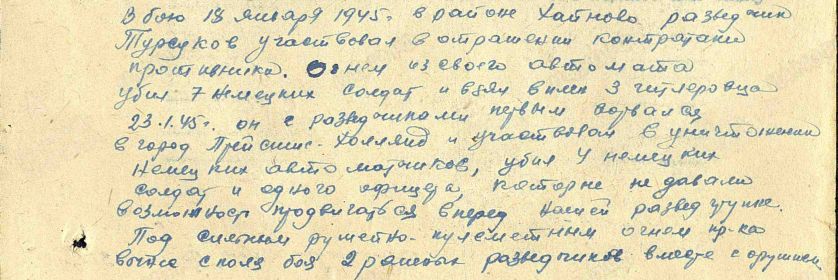 В бою 18 января 1945г. в районе Хайново разведчик
Турсуков участвовал в отражении контратаки
противника. Огнем из своего автомата
убил 7 немецких солдат и взял в плен 3 гитлеровца
23.1.45г. он с разведчиками первым ворвался
в город Прейсиш-Холлянд и участвовал в уничтожении
немецких автоматчиков, убил 4 немецких
солдат и одного офицера, которые не давали
возможност продвигаться вперед нашей разведгруппе.
Под сильным ружейно-пулеметным огнем пр-ка
вынес с поля боя 2 раненых разведчиков вместе с оружием